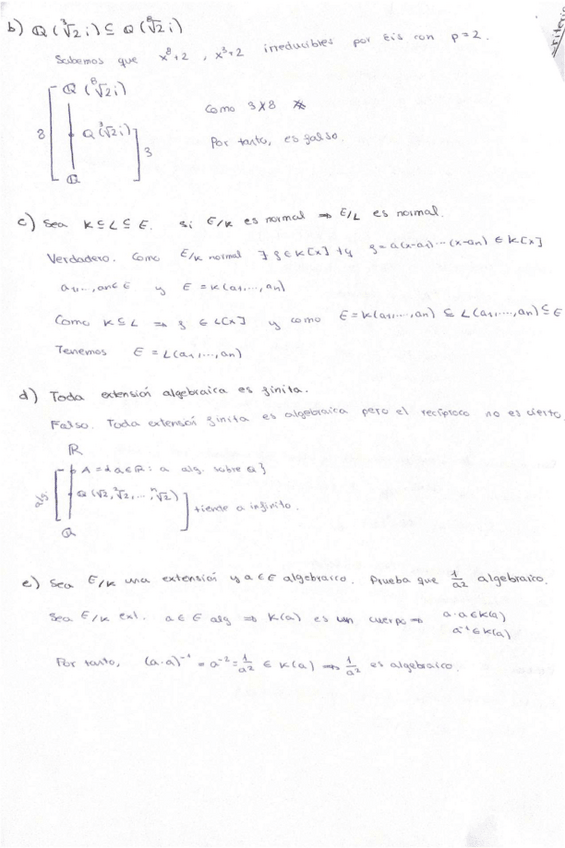 criterio
b) Q(∛2 i) ⊆ Q(⁸√2 i)
Sabemos que x⁸+2, x³+2 ineducibles por Eis con p=2.
Q(⁸√2 i)
Como 3∤8 ※
8 Q(∛2 i) 3
Por tanto, es falso.
Q
c) Sea K ⊆ L ⊆ E. Si E/K es normal ⇒ E/L es normal.
Verdadero. Como E/K normal ∃ f ∈ K[x] tq f = a(x-a₁)...(x-an) ∈ K[x]
a₁,...,an ∈ E y E = K(a₁,...,an)
Como K ⊆ L ⇒ f ∈ L[x] y como E = K(a₁,...,an) ⊆ L(a₁,...,an) ⊆ E
Tenemos E = L(a₁,...,an)
d) Toda extensión algebraica es finita.
Falso. Toda extensión finita es algebraica pero el recíproco no es cierto.
R
A = {a ∈ R : a alg. sobre Q}
alg. Q(√2, ³√2, ..., ⁿ√2) tiende a infinito.
Q
e) Sea E/K una extensión y a ∈ E algebraico. Prueba que 1/a² algebraico.
Sea E/K ext. a ∈ E alg ⇒ K(a) es un cuerpo ⇒ a·a ∈ K(a)
a⁻¹ ∈ K(a)
Por tanto, (a·a)⁻¹ = a⁻² = 1/a² ∈ K(a) ⇒ 1/a² es algebraico.